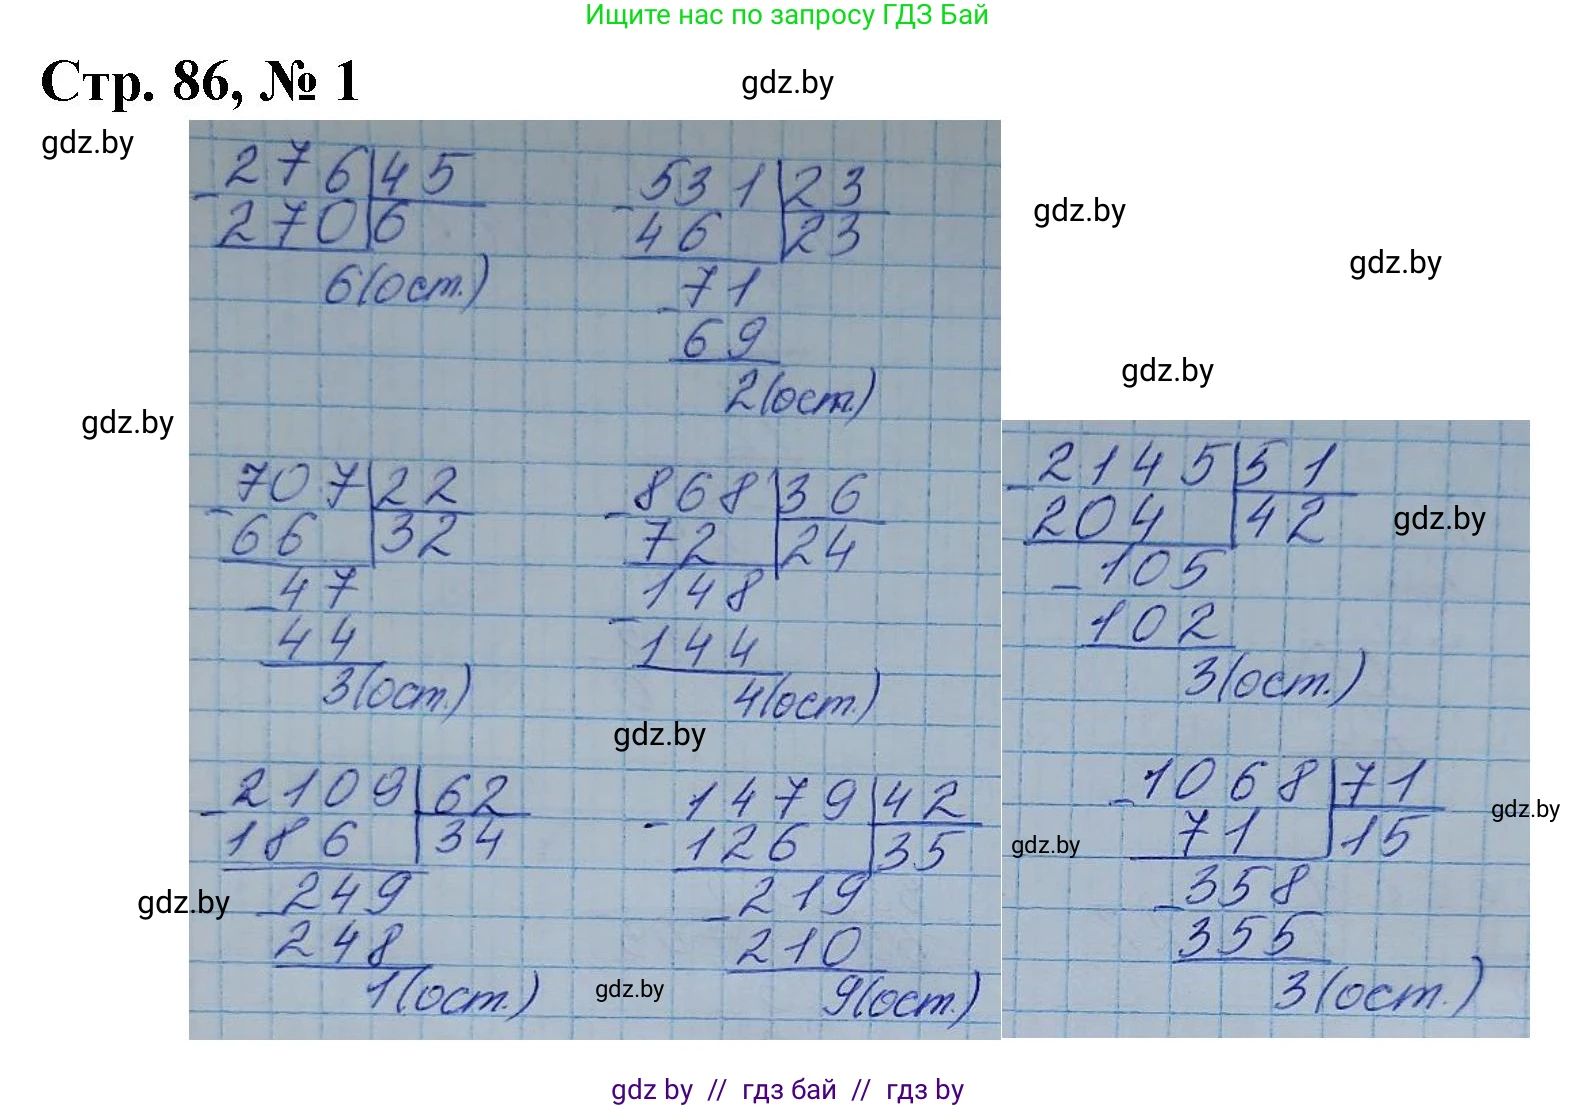 Ищите нас по запросу ГДЗ Бай
Стр. 86, № 1
gdz.by
gdz.by
276 45
270 6
6(ост.)
531 23
46 23
71
69
2(ост.)
gdz.by
gdz.by
gdz.by
gdz.by
707 22
66 32
47
44
3(ост.)
868 36
72 24
148
144
4(ост.)
2145 51
204 42
gdz.by
105
102
3(ост.)
gdz.by
2109 62
186 34
249
gdz.by
248
1(ост.)
1479 42
126 35
219
210
9(ост.)
gdz.by
1068 71
71 15
gdz.by
gdz.by
358
355
3(ост.)
gdz by // гдз бай // гдз by